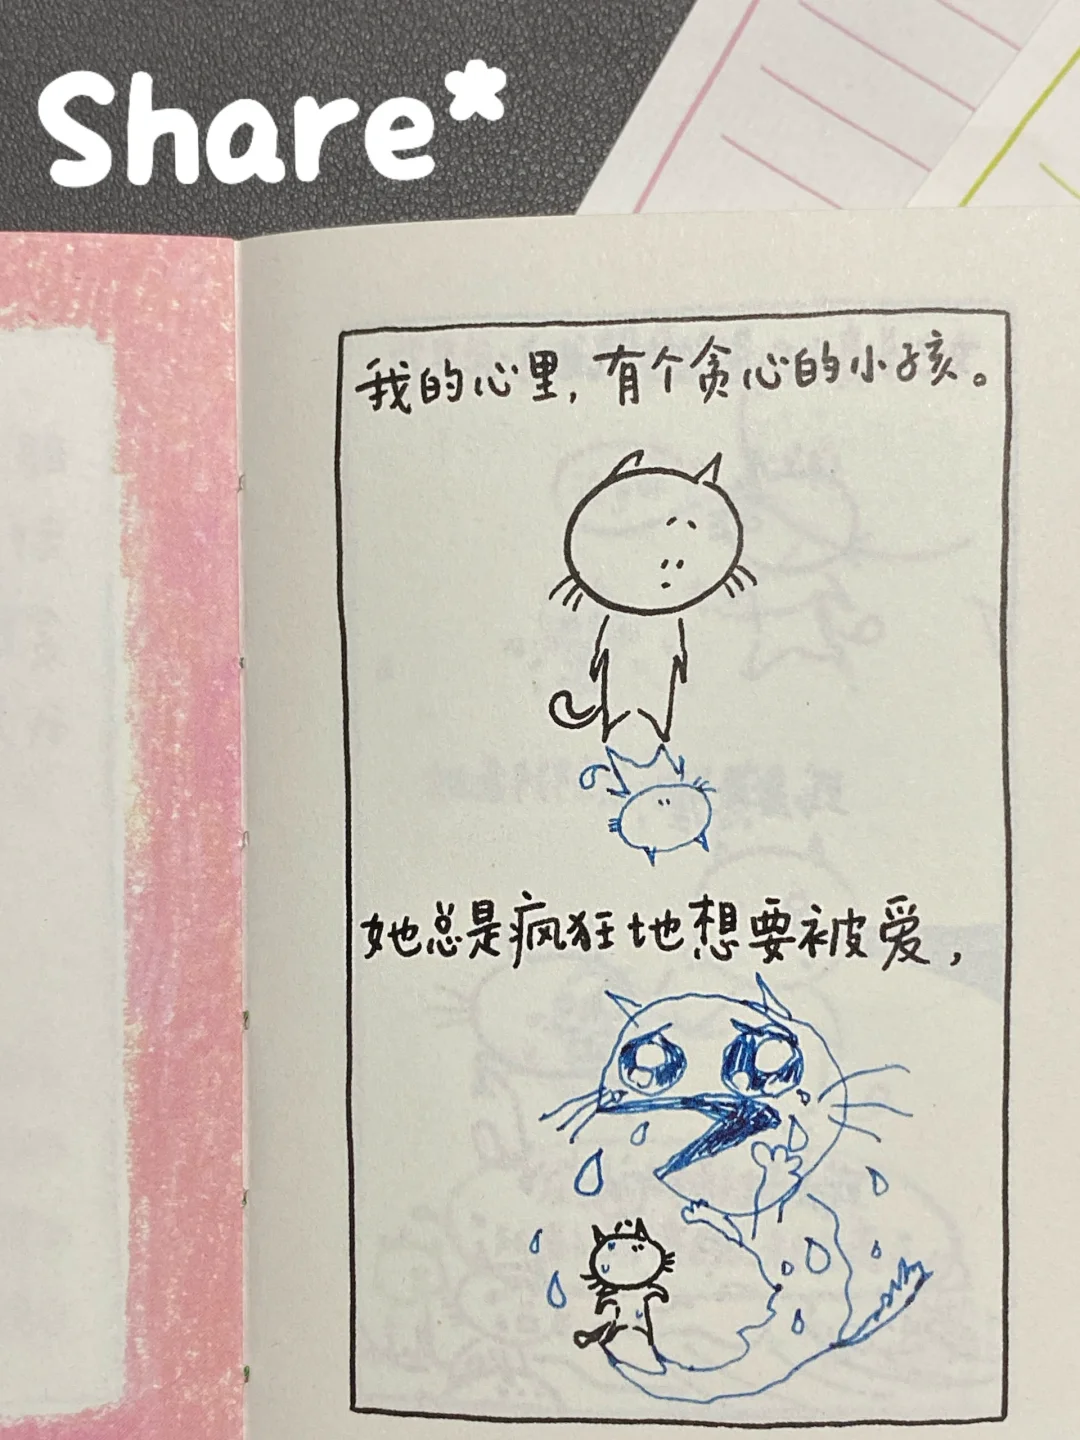 Share*
我的心里,有个贪心的小孩。
她总是疯狂地想要被爱,